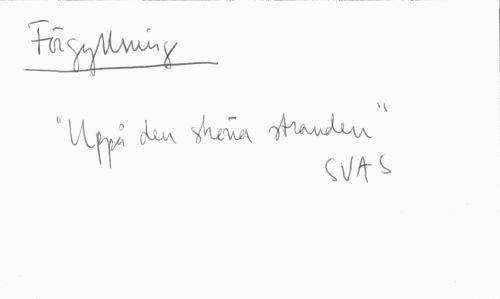 Förgyllning
"Uppå den sköna stranden"
SVAS